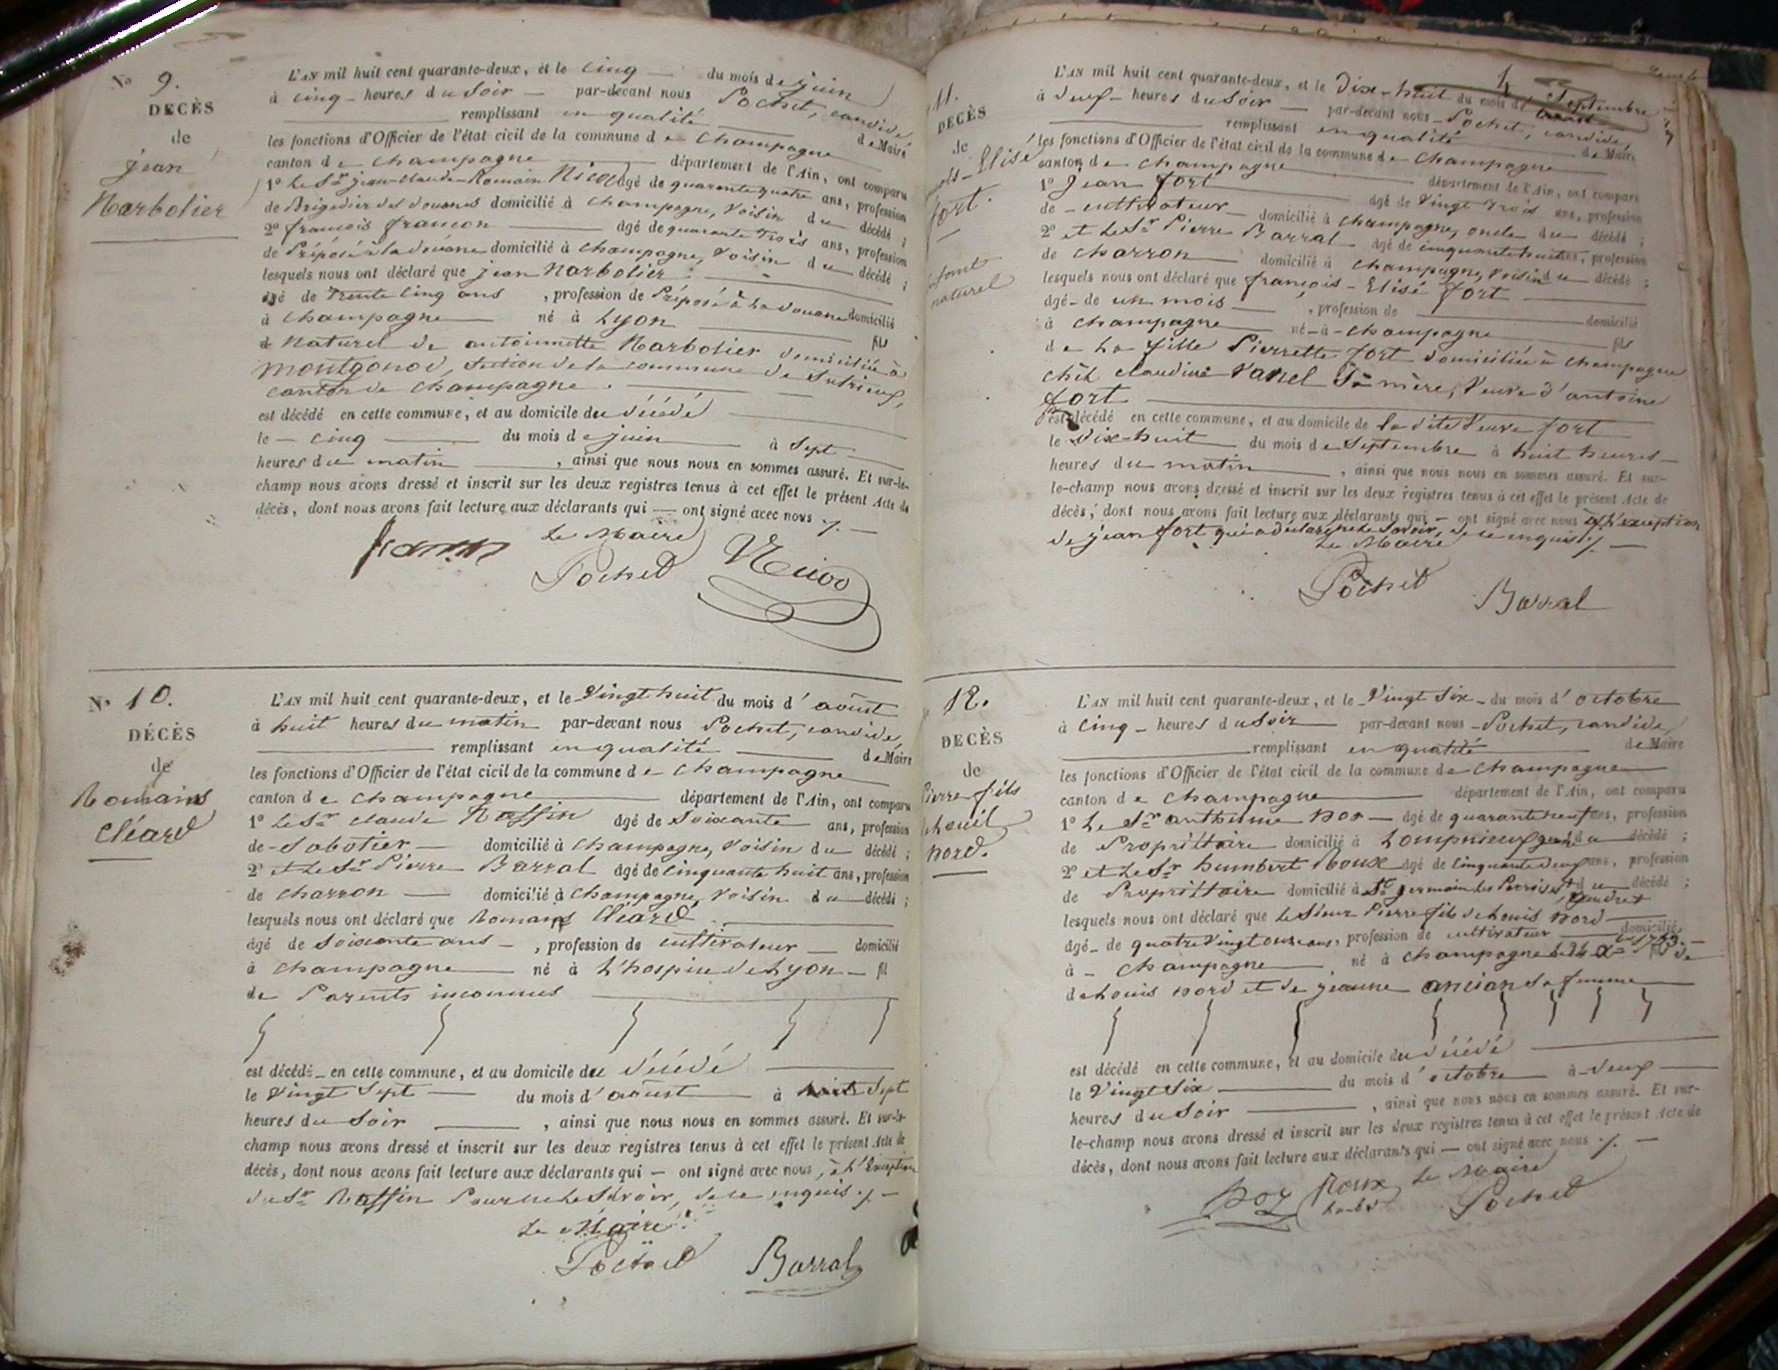 N° 9.
DÉCÈS
de
jean
Narbolier
L'AN mil huit cent quarante-deux, et le cinq du mois de juin
à cinq heures du soir par-devant nous Pochet, candide,
remplissant en qualité de Maire
les fonctions d'Officier de l'état civil de la commune de Champagne
canton de Champagne département de l'Ain, ont comparu
1° Le Sr jean-claude-Romain agé de quarante quatre ans, profession
de Brigadier des douanes domicilié à Champagne, voisin du décédé ;
2° francois francon agé de quarante trois ans, profession
de Préposé à la douane domicilié à Champagne, voisin du décédé ;
lesquels nous ont déclaré que jean Narbolier
agé de trente cinq ans , profession de Préposé à la douane domicilié
à Champagne né à Lyon fils
naturel de antoinette Narbolier domiciliée à
montgonod, section de la commune de Sutrieux,
canton de Champagne.
est décédé en cette commune, et au domicile du décédé
le cinq du mois de juin à sept
heures du matin , ainsi que nous nous en sommes assuré. Et sur-le-
champ nous avons dressé et inscrit sur les deux registres tenus à cet effet le présent Acte de
décès, dont nous avons fait lecture aux déclarants qui ont signé avec nous ./.
Le Maire
Pochet
N° 10.
DÉCÈS
de
Romains
Cléard
L'AN mil huit cent quarante-deux, et le vingt huit du mois d'août
à huit heures du matin par-devant nous Pochet, candide,
remplissant en qualité de Maire
les fonctions d'Officier de l'état civil de la commune de Champagne
canton de Champagne département de l'Ain, ont comparu
1° Le Sr claude Raffin agé de soixante ans, profession
de Sabotier domicilié à Champagne, voisin du décédé ;
2° et Le Sr Pierre Barral agé de cinquante huit ans, profession
de charron domicilié à Champagne, voisin du décédé ;
lesquels nous ont déclaré que Romans Cléard
agé de soixante ans , profession de cultivateur domicilié
à Champagne né à L'hospice de Lyon fil
de Parents inconnus
est décédé en cette commune, et au domicile du décédé
le vingt sept du mois d'août à sept
heures du soir , ainsi que nous nous en sommes assuré. Et sur-le-
champ nous avons dressé et inscrit sur les deux registres tenus à cet effet le présent Acte de
décès, dont nous avons fait lecture aux déclarants qui ont signé avec nous, à L'Exception
du Sr Raffin Pour ne le Savoir, de ce enquis ./.
Le Maire
Pochet Barral
11.
DÉCÈS
de
Elisé
fort.
naturel
L'AN mil huit cent quarante-deux, et le Dix-huit du mois de Septembre
à deux heures du soir par-devant nous Pochet, candide,
remplissant en qualité de Maire
les fonctions d'Officier de l'état civil de la commune de Champagne
canton de Champagne département de l'Ain, ont comparu
1° Jean fort agé de vingt trois ans, profession
de cultivateur domicilié à Champagne, oncle du décédé ;
2° et Le Sr Pierre Barral agé de cinquante huit ans, profession
de charron domicilié à Champagne, voisin du décédé ;
lesquels nous ont déclaré que françois-Elisé fort
agé de un mois , profession de domicilié
à Champagne né à Champagne fils
de La fille Pierrette fort domiciliée à Champagne
chéz claudine Vanel sa mère, Veuve d'antoine
fort
est décédé en cette commune, et au domicile de la dite Veuve fort
le Dix-huit du mois de Septembre à huit heures
heures du matin , ainsi que nous nous en sommes assuré. Et sur-
le-champ nous avons dressé et inscrit sur les deux registres tenus à cet effet le présent Acte de
décès, dont nous avons fait lecture aux déclarants qui ont signé avec nous à L'exception
de jean fort qui a déclaré ne le Savoir, de ce enquis ./.
Le Maire
Pochet Barral
12.
DÉCÈS
de
Pierre fils
de Louis
Nord.
L'AN mil huit cent quarante-deux, et le vingt six du mois d'octobre
à cinq heures du soir par-devant nous Pochet, candide,
remplissant en qualité de Maire
les fonctions d'Officier de l'état civil de la commune de Champagne
canton de Champagne département de l'Ain, ont comparu
1° Le Sr anthime agé de quarante neuf ans, profession
de Propriétaire domicilié à Lompnieux, du décédé ;
2° et Le Sr humbert Roux agé de cinquante deux ans, profession
de Propriétaire domicilié à St germain les Paroisses, du décédé ;
lesquels nous ont déclaré que Le Sieur Pierre fils de Louis Nord
agé de quatre vingt onze ans, profession de cultivateur domicilié
à Champagne né à Champagne
de Louis Nord et de jeanne ancian sa femme
est décédé en cette commune, et au domicile du décédé
le vingt six du mois d'octobre à deux
heures du soir , ainsi que nous nous en sommes assuré. Et sur-
le-champ nous avons dressé et inscrit sur les deux registres tenus à cet effet le présent Acte de
décès, dont nous avons fait lecture aux déclarants qui ont signé avec nous ./.
Roux Le Maire
Pochet